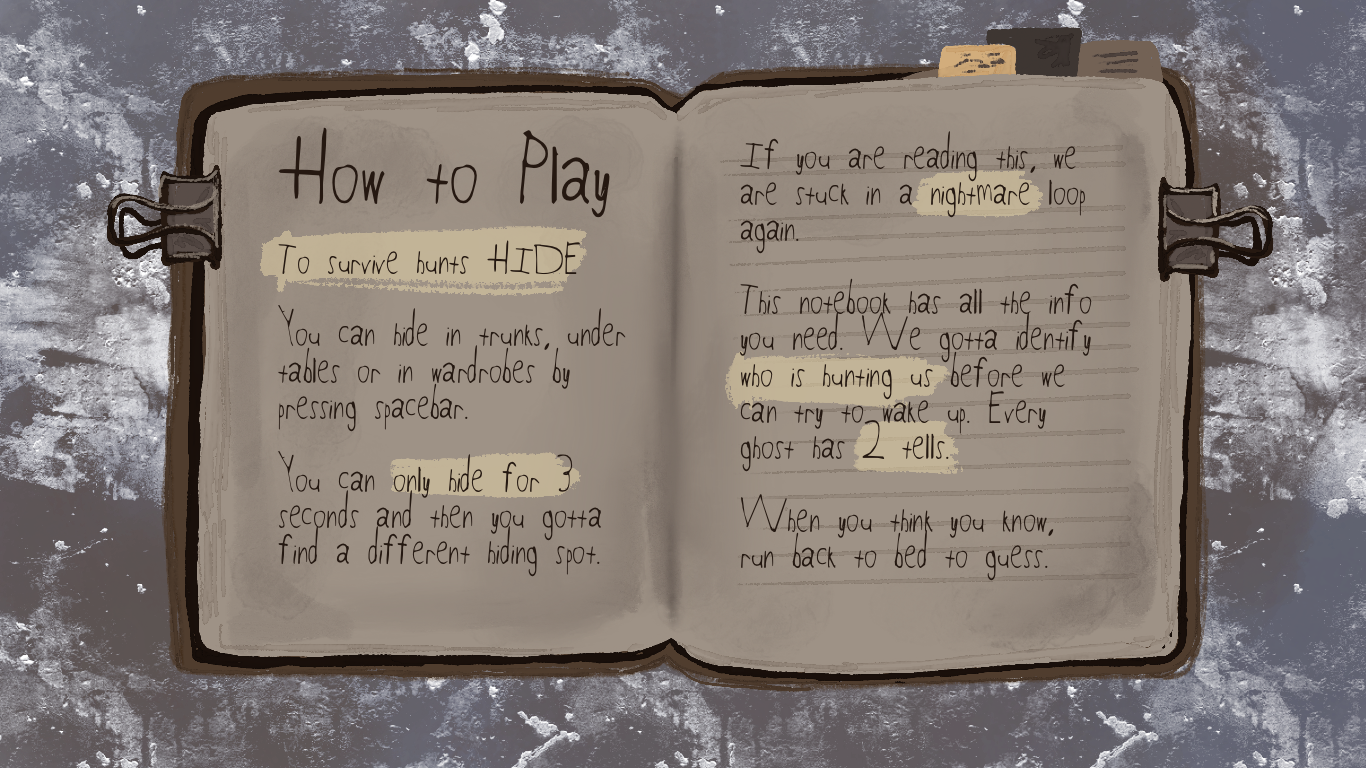 How to Play
To survive hunts HIDE
You can hide in trunks, under
tables or in wardrobes by
pressing spacebar.
You can only hide for 3
seconds and then you gotta
find a different hiding spot.
If you are reading this, we
are stuck in a nightmare loop
again.
This notebook has all the info
you need. We gotta identify
who is hunting us before we
can try to wake up. Every
ghost has 2 tells.
When you think you know,
run back to bed to guess.